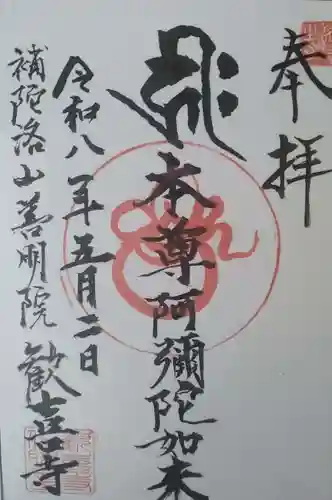 奉拝
本尊阿彌陀如来
令和八年五月二日
補陀洛山善明院
歓喜寺